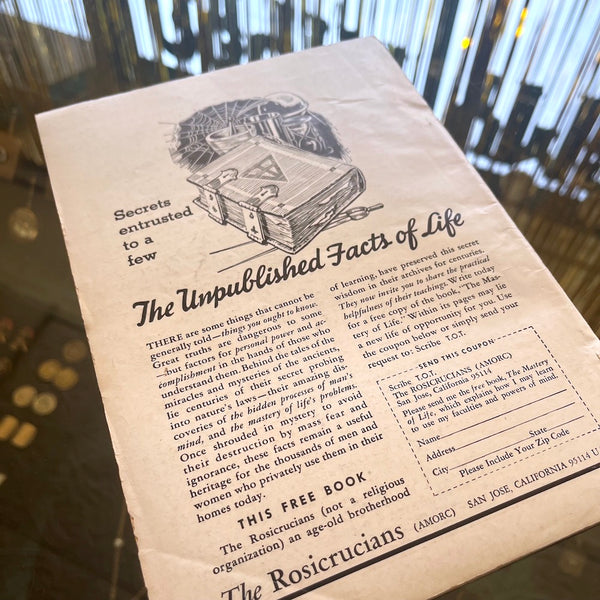 Secrets
entrusted
to a
few
The Unpublished Facts of Life
THERE are some things that cannot be
generally told—things you ought to know.
Great truths are dangerous to some
—but factors for personal power and ac-
complishment in the hands of those who
understand them. Behind the tales of the
miracles and mysteries of the ancients,
lie centuries of their secret probing
into nature's laws—their amazing dis-
coveries of the hidden processes of man's
mind, and the mastery of life's problems.
Once shrouded in mystery to avoid
their destruction by mass fear and
ignorance, these facts remain a useful
heritage for the thousands of men and
women who privately use them in their
homes today.
THIS FREE BOOK
The Rosicrucians (not a religious
organization) an age-old brotherhood
of learning, have preserved this secret
wisdom in their archives for centuries.
They now invite you to share the practical
helpfulness of their teachings. Write today
for a free copy of the book, "The Mas-
tery of Life." Within its pages may lie
a new life of opportunity for you. Use
the coupon below or simply send your
request to: Scribe T.O.T.
SEND THIS COUPON
Scribe T.O.T.
The ROSICRUCIANS (AMORC)
San Jose, California 95114
Please send me the free book, The Mastery
of Life, which explains how I may learn
to use my faculties and powers of mind.
Name
Address
City State
Please Include Your Zip Code
The Rosicrucians (AMORC) SAN JOSE, CALIFORNIA 95114 U